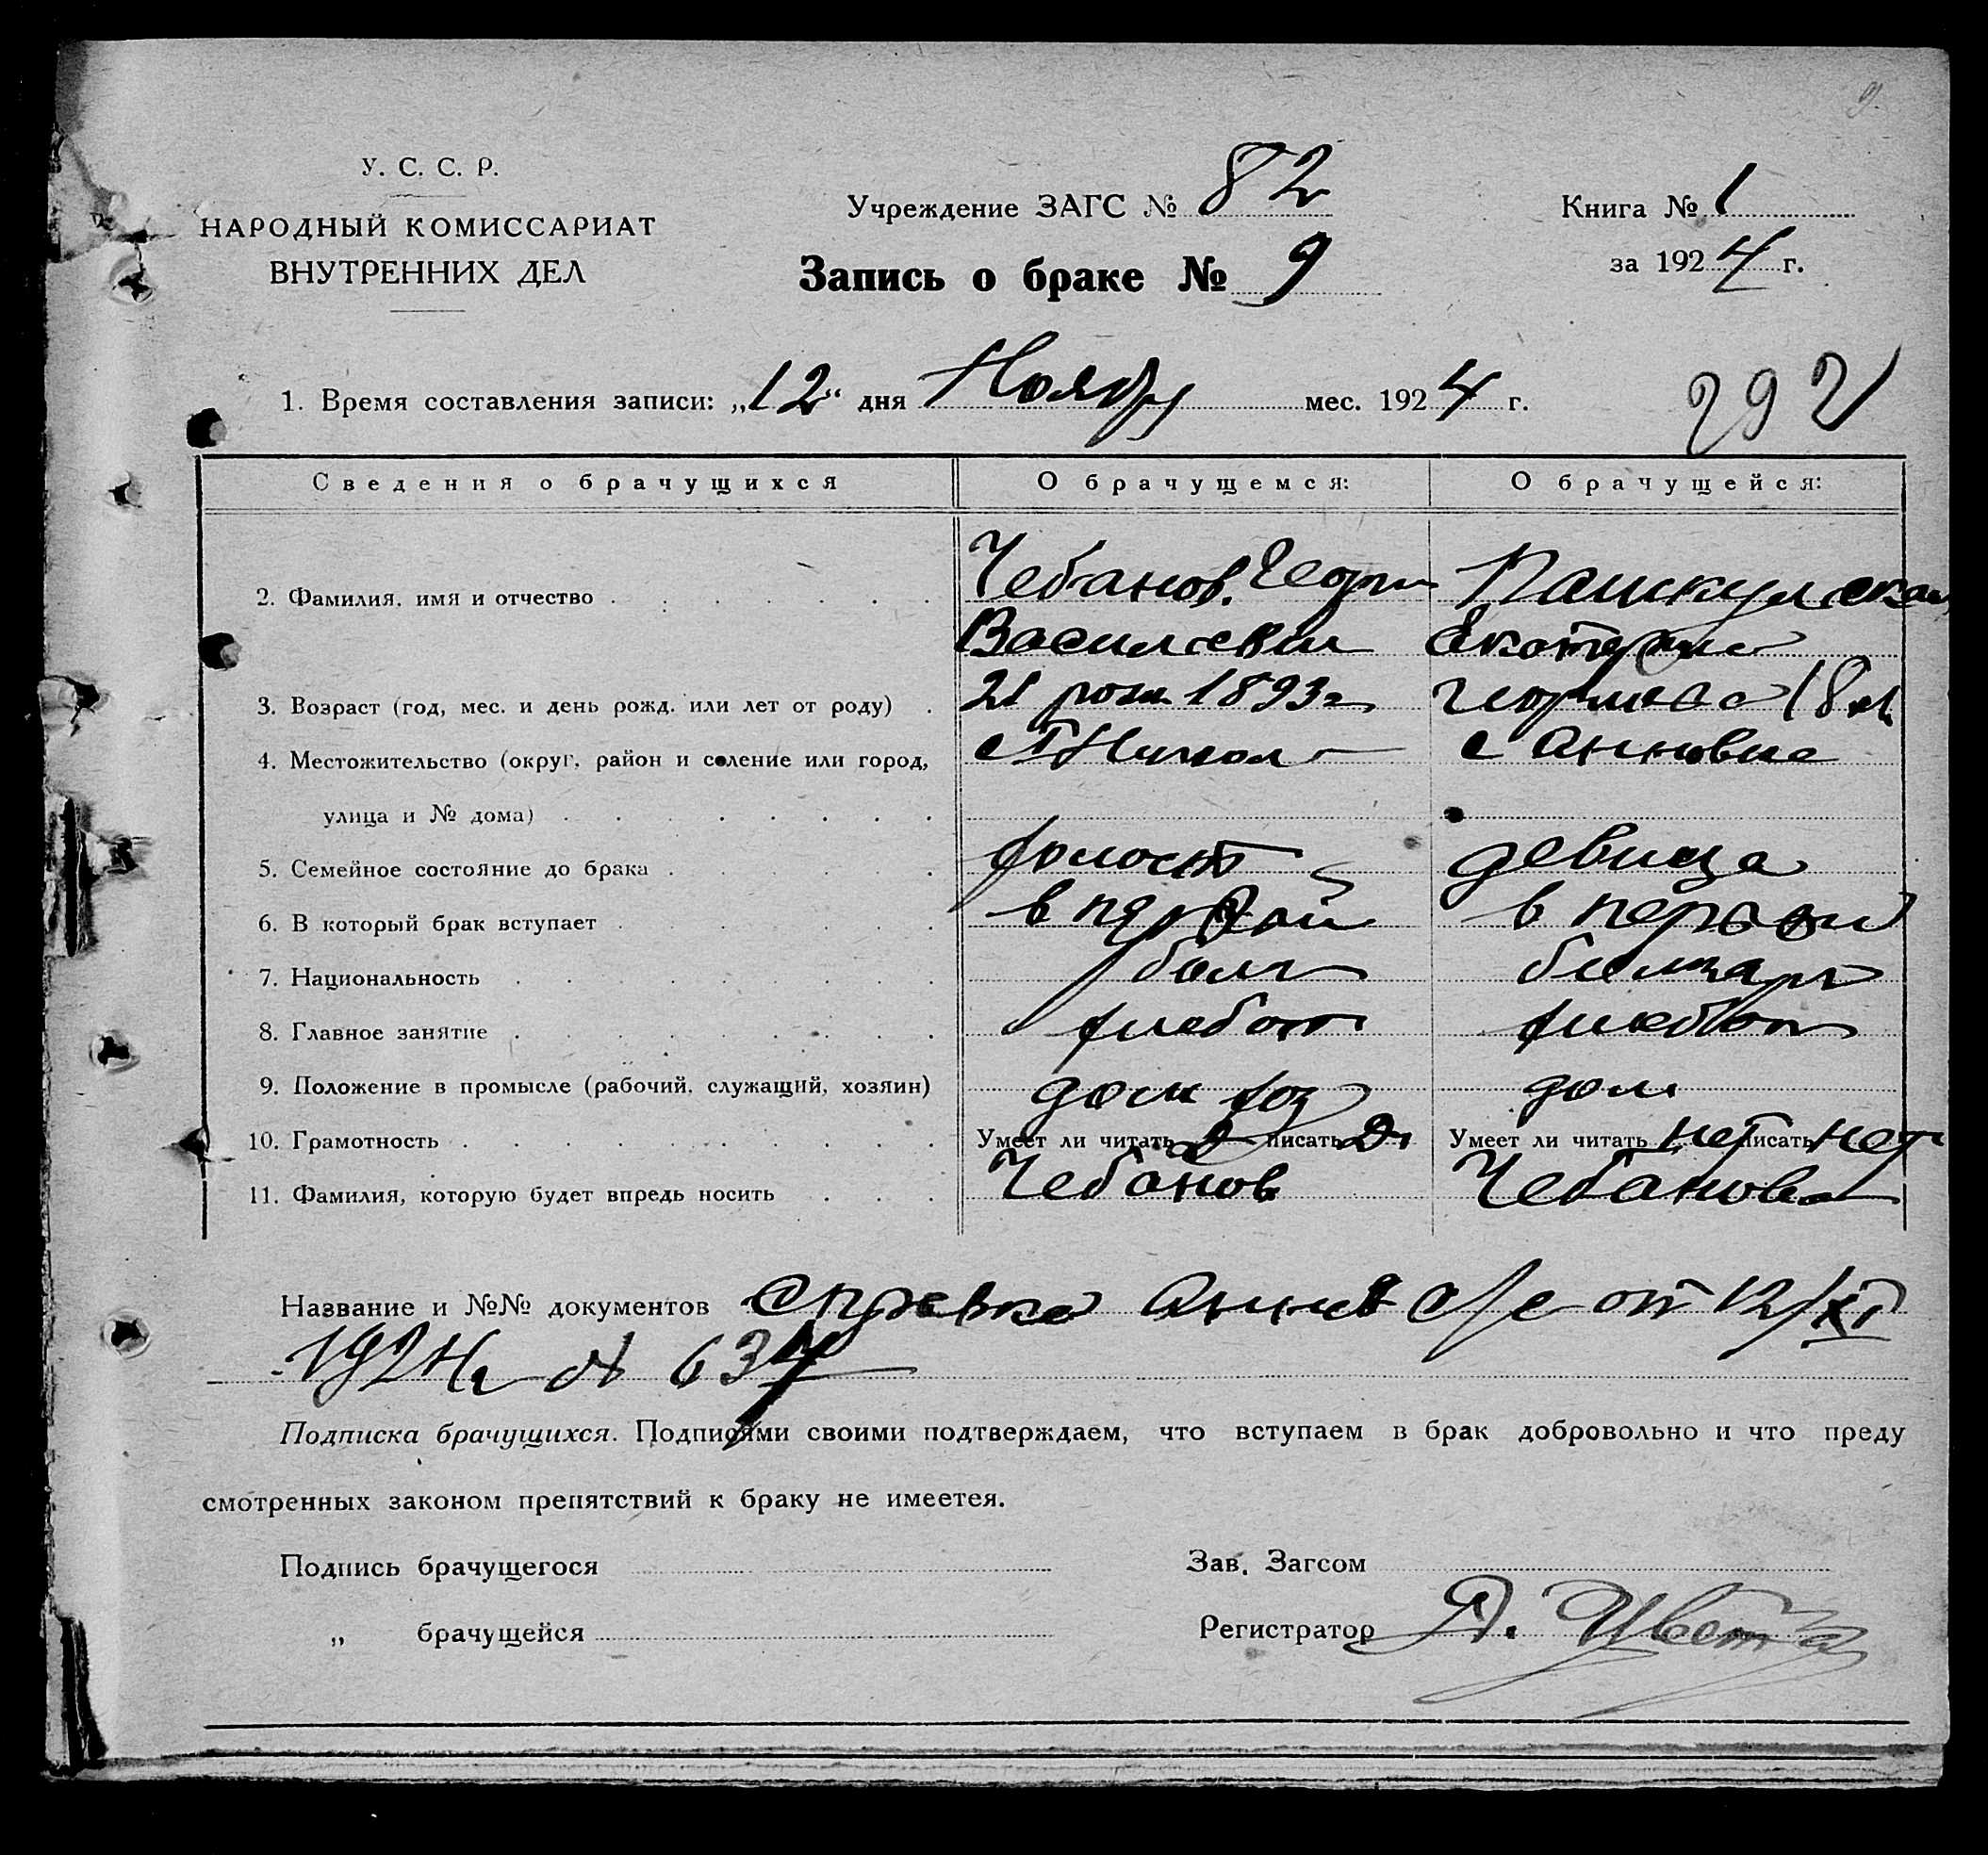 9.
У. С. С. Р.
НАРОДНЫЙ КОМИССАРИАТ
ВНУТРЕННИХ ДЕЛ
Учреждение ЗАГС № 82
Запись о браке № 9
Книга № 1
за 1924 г.
1. Время составления записи: „12“ дня Ноябр мес. 1924 г.
292
Сведения о брачущихся О брачущемся: О брачущейся:
2. Фамилия, имя и отчество Чебанов Георги
Васильевич Екатерина
3. Возраст (год, мес. и день рожд. или лет от роду) 21 рож 1893г 18 л
4. Местожительство (округ, район и селение или город, с Анновке
улица и № дома)
5. Семейное состояние до брака холост девица
6. В который брак вступает в первый в первый
7. Национальность болг болгарк
8. Главное занятие хлебоп хлебоп
9. Положение в промысле (рабочий, служащий, хозяин) дом хоз дом
10. Грамотность Умеет ли читать д писать д Умеет ли читать нет писать нет
11. Фамилия, которую будет впредь носить Чебанов Чебанова
Название и №№ документов справка Аннов с/с от 12/XI
1924г № 637
Подписка брачущихся. Подписями своими подтверждаем, что вступаем в брак добровольно и что преду
смотренных законом препятствий к браку не имеетея.
Подпись брачущегося Зав. Загсом
„ брачущейся Регистратор